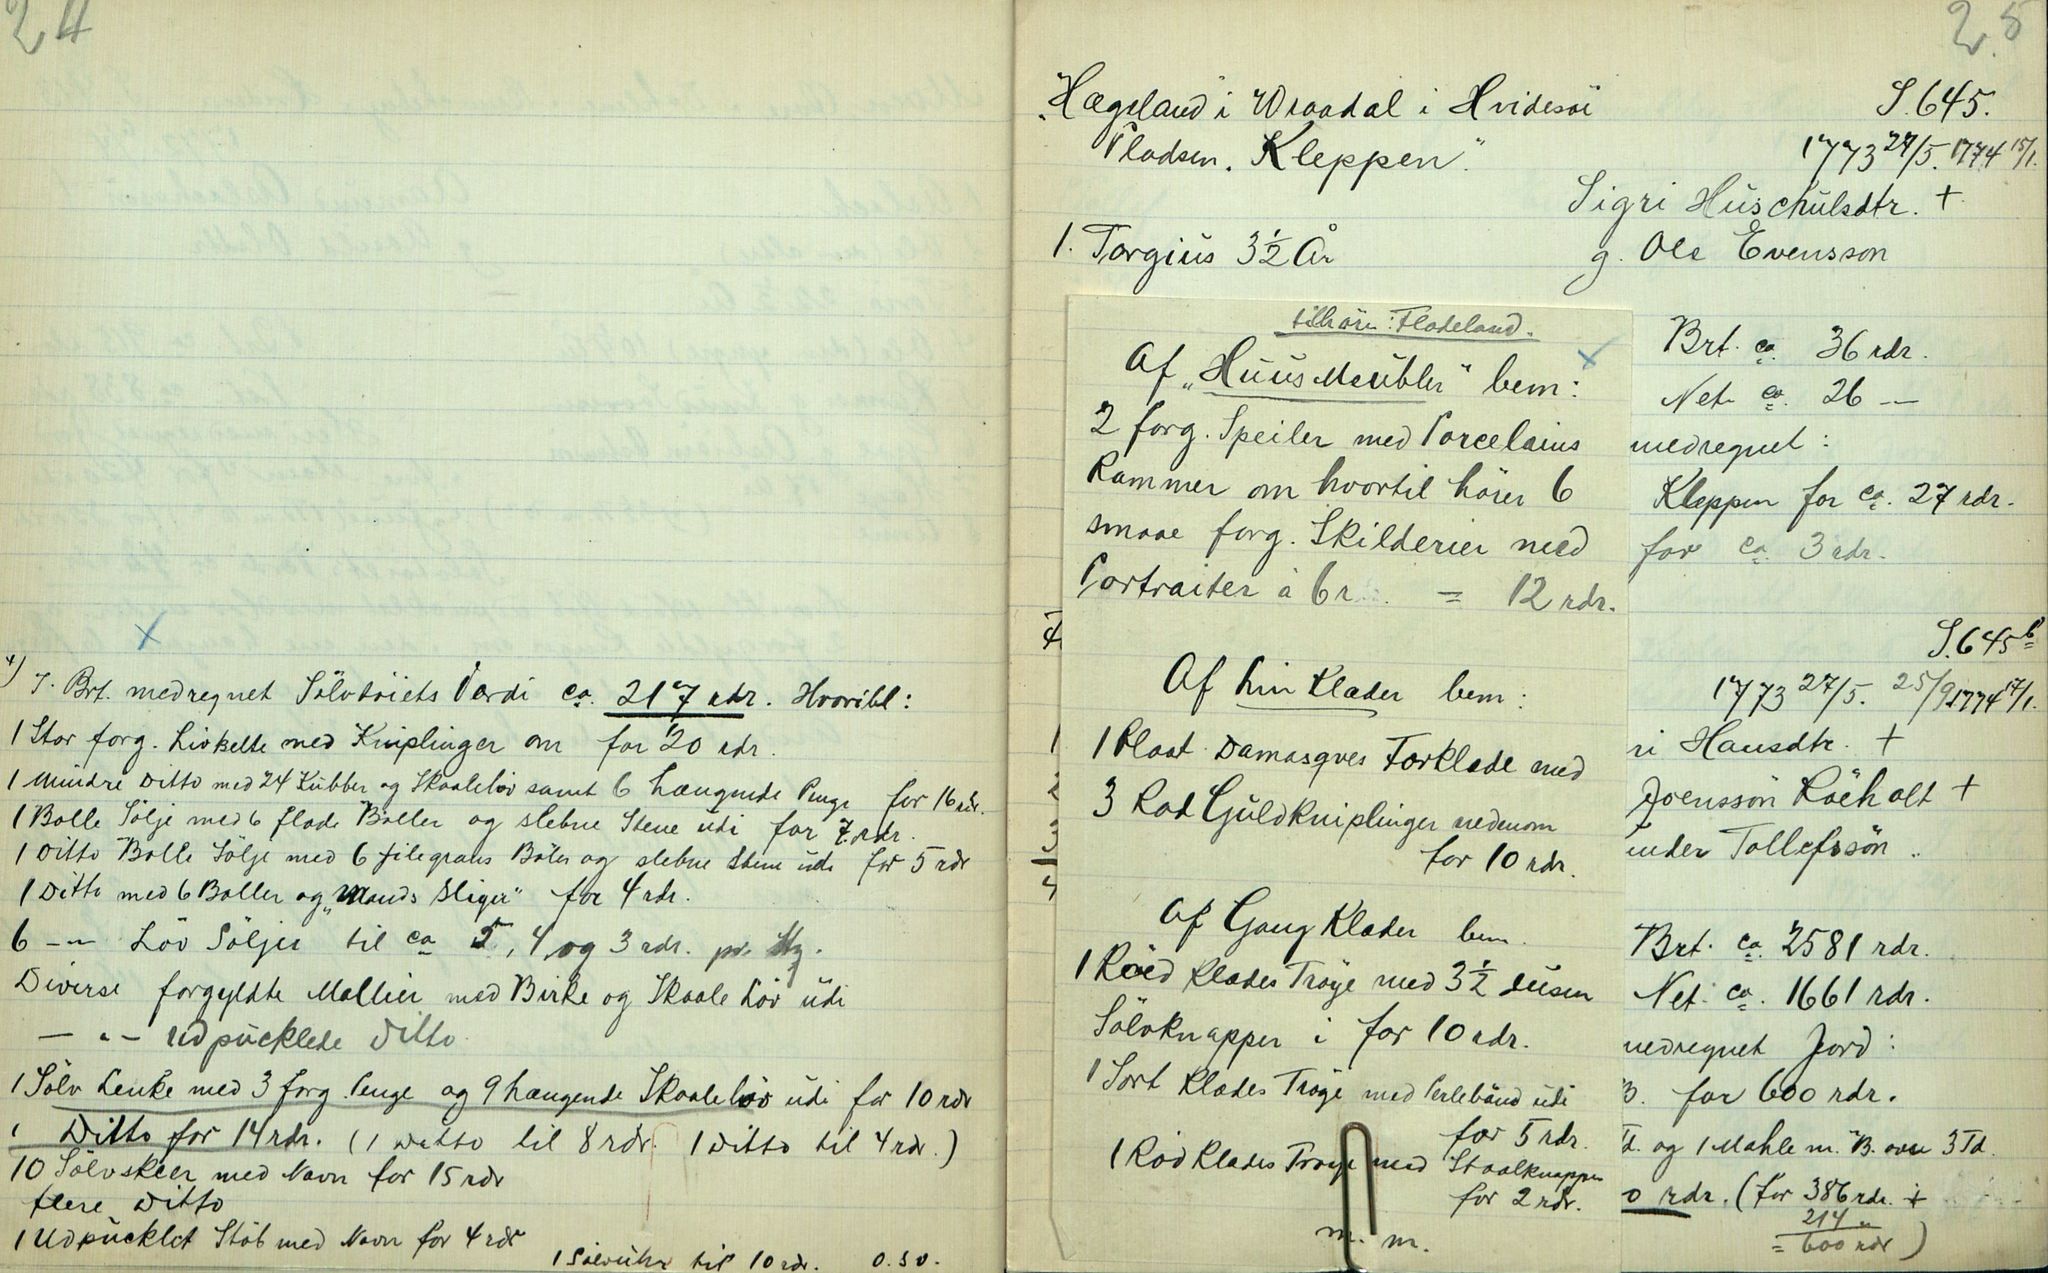 24
x
4) I. Brt. medregnet Sölvtöiets Værdi ca. 217 rdr. Hvoribl:
1 Stor forg. Livkelte med Kniplinger om for 20 rdr.
1 Mindre Ditto med 24 Kubber og Skaaleløv samt 6 hængende Penge for 16 rdr.
1 Bolle Sölje med 6 flade Boller og slebne Stene udi for 7 rdr.
1 Ditto Bolle Sölje med 6 filegrans Böler og slebne Stene udi for 5 rdr
1 Ditto med 6 Boller og „Mands Sliger" for 4 rdr.
6 -"- Löv Söljer til ca 5, 4 og 3 rdr. pr. Stz.
Diverse forgyldte Mallier med Birke og Skaale Löv udi
- " - Udpucklede Ditto
1 Sölv Lenke med 3 forg. Penge og 9 hængende Skaaleløv udi for 10 rdr
1 Ditto for 14 rdr. (1 Ditto til 8 rdr. 1 Ditto til 4 rdr.)
10 Sölvskeer med Navn for 15 rdr
flere Ditto
1 Udpucklet Stöb med Navn for 4 rdr
1 Sölvuhr til 10 rdr. o.s.v.
25
"Hægeland i Wraadal i Hvidesöi S. 645.
Pladsen „Kleppen". 1773 27/5. 1774 15/1.
Sigri Huschulsdtr. +
1. Torgius 3½ År g. Ole Evensson
tilhörer: Fladeland.
Af „Huus Meubler" bem: x
2 forg. Speiler med Porcelains
Rammer om hvortil hörer 6
smaae forg. Skilderier med
Portraiter à 6 r. = 12 rdr.
Af Lin Klæder bem:
1 Blaat Damasqves Forklæde med
3 Rad Guldkniplinger nedenom
for 10 rdr.
Af Gang Klæder bem.
1 Röed Klædes Tröye med 3½ dusin
Sölvknapper i for 10 rdr.
1 Sort Klædes Tröye med Perlebånd udi
for 5 rdr.
1 Röd Klædes Tröye med Staalknapper
for 2 rdr.
m. m.
Brt. ca. 36 rdr.
Net. ca. 26 —
medregnet:
Kleppen for ca. 27 rdr.
for ca. 3 rdr.
S. 645 b
1773 27/5. 25/9 1774 17/1.
ri Hansdtr. +
Joensson Röeholt +
under Tollefssön
Brt. ca. 2581 rdr.
Net. ca. 1661 rdr.
medregnet Jord:
B. for 600 rdr.
Td. og 1 Mahle m. B. over 3 Td.
0 rdr. (for 386 rdr. +
214 "
= 600 rdr)
4
1
2
3
4